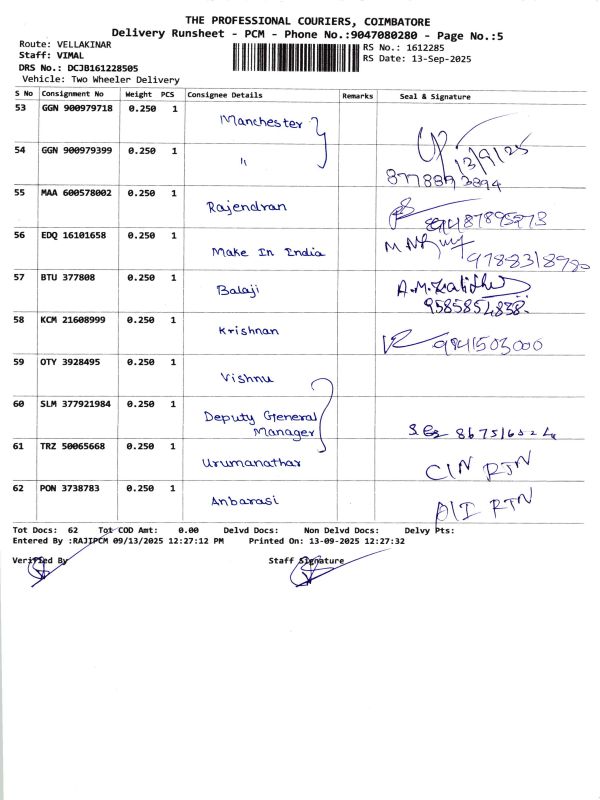 THE PROFESSIONAL COURIERS, COIMBATORE
Delivery Runsheet - PCM - Phone No.:9047080280 - Page No.:5
Route: VELLAKINAR
RS No.: 1612285
Staff: VIMAL
RS Date: 13-Sep-2025
DRS No.: DCJB161228505
Vehicle: Two Wheeler Delivery
S No Consignment No Weight PCS Consignee Details Remarks Seal & Signature
53 GGN 900979718 0.250 1 Manchester
54 GGN 900979399 0.250 1 " 13/9/25
8778893894
55 MAA 600578002 0.250 1 Rajendran
56 EDQ 16101658 0.250 1 Make In India 9788318980
57 BTU 377808 0.250 1 Balaji
9585854838.
58 KCM 21608999 0.250 1 Krishnan 9841503000
59 OTY 3928495 0.250 1 Vishnu
60 SLM 377921984 0.250 1 Deputy General
Manager
61 TRZ 50065668 0.250 1 Urumanathar C/N RTN
62 PON 3738783 0.250 1 Anbarasi RTN
Tot Docs: 62 Tot COD Amt: 0.00 Delvd Docs: Non Delvd Docs: Delvy Pts:
Entered By :RAJIPCM 09/13/2025 12:27:12 PM Printed On: 13-09-2025 12:27:32
Verified By Staff Signature